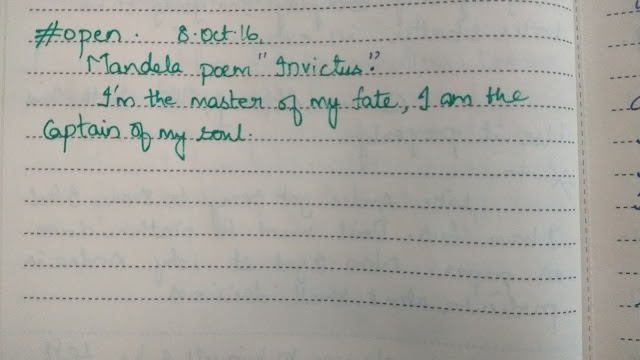 #open. 8.Oct.16.
Mandela poem "Invictus."
I'm the master of my fate, I am the
Captain of my soul.